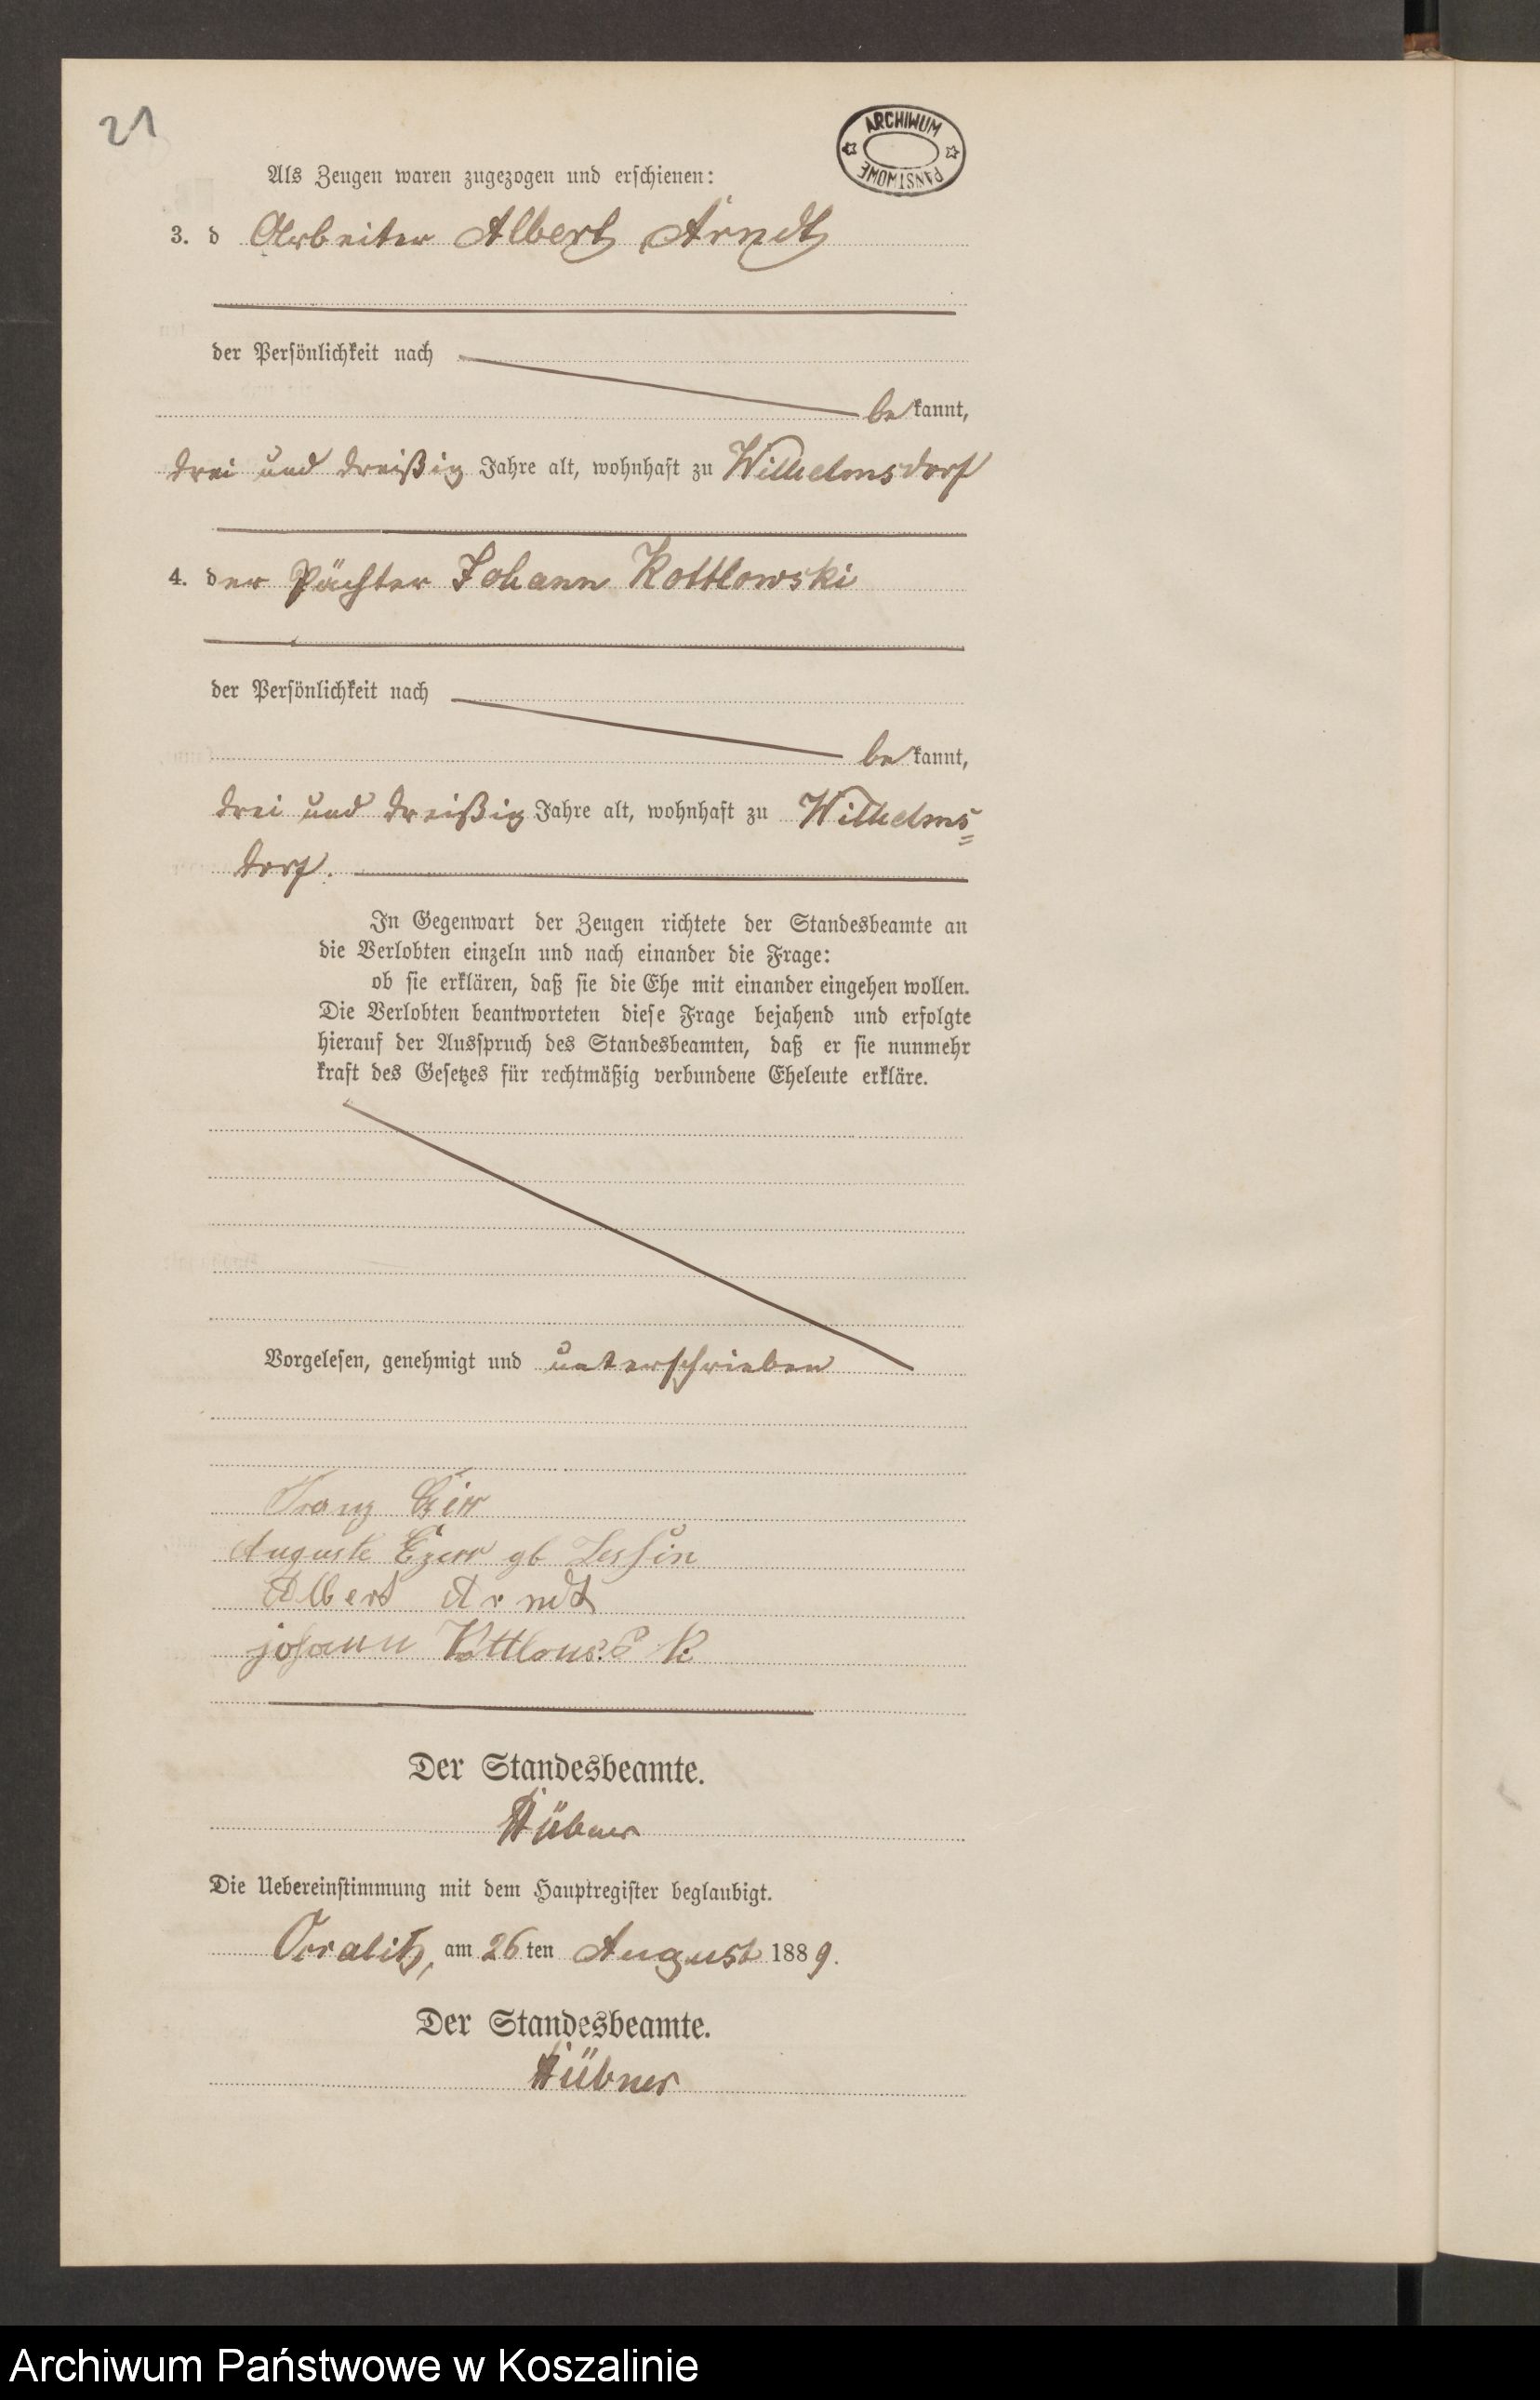 21
ARCHIWUM
PAŃSTWOWE
Als Zeugen waren zugezogen und erschienen:
3. d Arbeiter Albert Arndt
der Persönlichkeit nach
bekannt,
drei und dreißig Jahre alt, wohnhaft zu Wilhelmsdorf
4. der Pächter Johann Kottlowski
der Persönlichkeit nach
bekannt,
drei und dreißig Jahre alt, wohnhaft zu Wilhelms=
dorf.
In Gegenwart der Zeugen richtete der Standesbeamte an
die Verlobten einzeln und nach einander die Frage:
ob sie erklären, daß sie die Ehe mit einander eingehen wollen.
Die Verlobten beantworteten diese Frage bejahend und erfolgte
hierauf der Ausspruch des Standesbeamten, daß er sie nunmehr
kraft des Gesetzes für rechtmäßig verbundene Eheleute erkläre.
Vorgelesen, genehmigt und unterschrieben
Franz
Auguste gb Lessin
Albert Arndt
johann
Der Standesbeamte.
Hübner
Die Uebereinstimmung mit dem Hauptregister beglaubigt.
am 26ten August 1889.
Der Standesbeamte.
Hübner
Archiwum Państwowe w Koszalinie